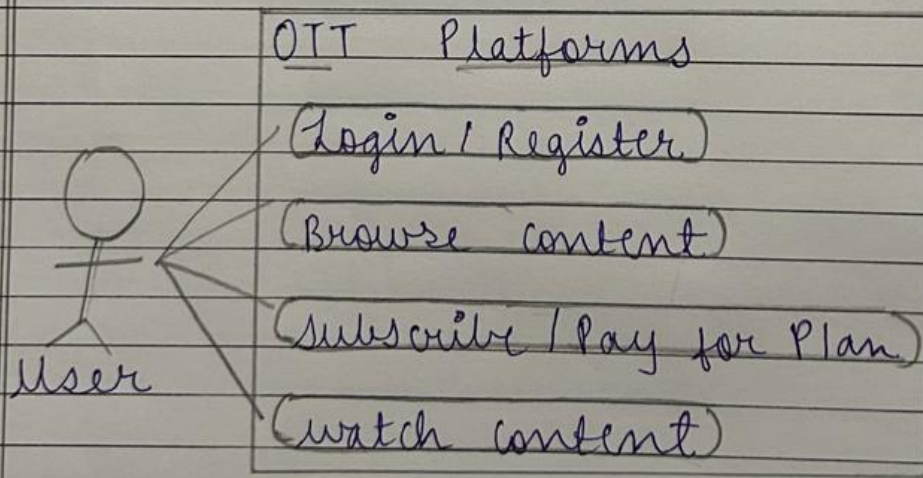 OTT Platforms
Login / Register
Browse content
Subscribe / Pay for Plan
User
watch content